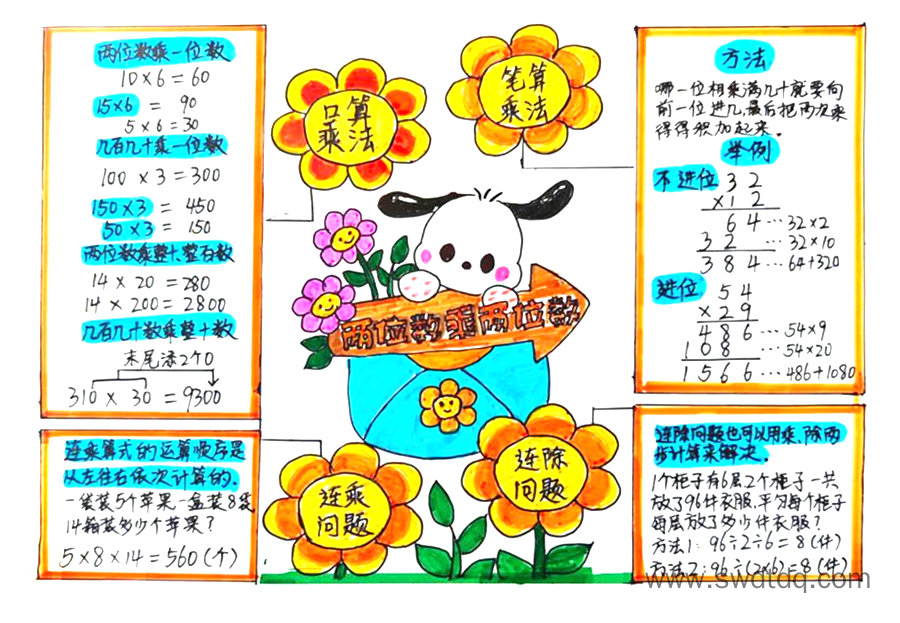 两位数乘一位数
10×6=60
15×6 = 90
5×6=30
几百几十乘一位数
100 × 3=300
150×3 = 450
50×3 = 150
两位数乘整十、整百数
14 × 20 =280
14 × 200=2800
几百几十数乘整十数
末尾添2个0
310 × 30 =9300
口算
乘法
笔算
乘法
方法
哪一位相乘满几十就要向
前一位进几,最后把两次乘
得得积加起来.
举例
不进位 32
×12
64…32×2
32 …32×10
384…64+320
进位 54
×29
486…54×9
108 …54×20
1566…486+1080
两位数乘两位数
连乘算式的运算顺序是
从左往右依次计算的.
一袋装5个苹果一盒装8袋
14箱装多少个苹果?
5×8×14=560(个)
连乘
问题
连除
问题
连除问题也可以用乘、除两
步计算来解决.
1个柜子有6层2个柜子一共
放了96件衣服,平均每个柜子
每层放了多少件衣服?
方法1:96÷2÷6=8(件)
方法2:96÷(2×6)=8(件)
www.swdtdq.com